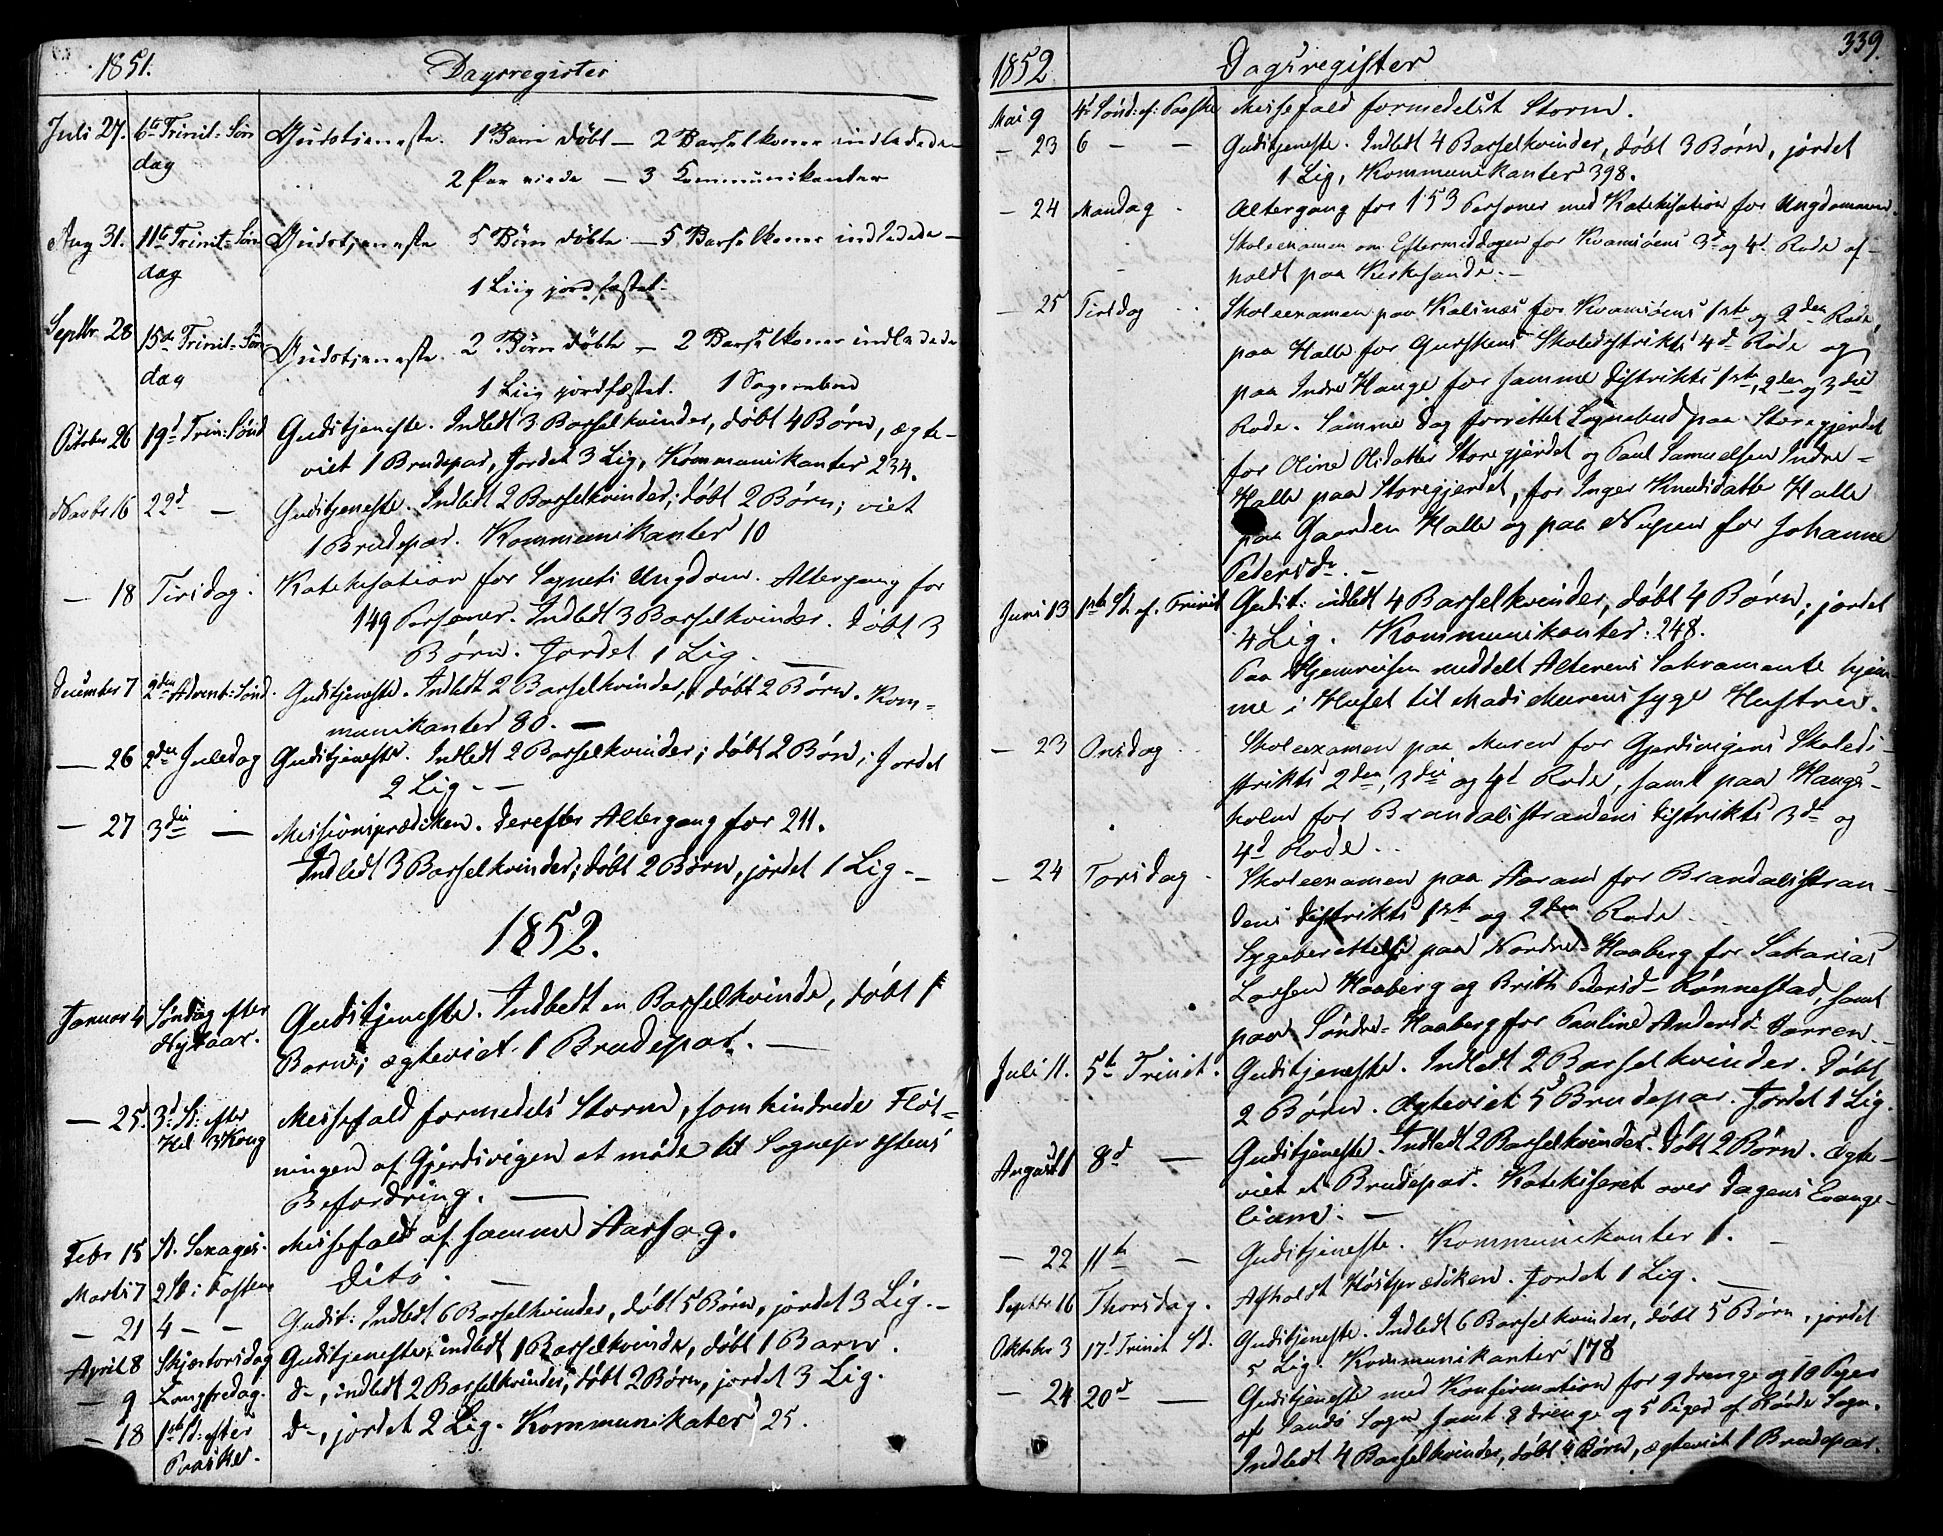 1851.
Dagsregister
Juli 27. 6te Trinit: Søn Gudstjeneste. 1 Barn døbt — 2 Barselkoner indledede
dag
2 Par viede — 3 Communikanter
Aug 31. 11te Trinit: Søn Gudstjeneste 5 Børn døbte — 5 Barselkoner indledede —
dag
1 Liig jordfæstet.
Septbr. 28 15de Trinit: Søn Gudstjeneste. 2 Børn døbte — 2 Barselkoner indledede
dag
1 Liig jordfæstet. 1 Sognebud
October 26 19d Trin: Sønd Gudstjeneste. Indledt 3 Barselkvinder, døbt 4 Børn, ægte-
viet 1 Brudepar, Jordet 3 Lig, Kommunikanter 234.
Novbr 16 22d — Gudstjeneste. Indledt 2 Barselkvinder; døbt 2 Børn; viet
1 Brudepar. Kommunikanter 10
— 18 Tirsdag. Katekisation for Sognets Ungdom. Altergang for
149 Personer. Indledt 3 Barselkvinder. Døbt 3
Børn. Jordet 1 Lig. —
December 7 2den Advent: Sønd. Gudstjeneste. Indledt 2 Barselkvinder, døbt 2 Børn. Kom-
munikanter 80. —
— 26 2den Juledag Gudstjeneste. Indledt 2 Barselkvinder; døbt 2 Børn; Jordet
2 Lig. —
— 27 3die — Missionsprædiken. Derefter Altergang for 211.
Indledt 3 Barselkvinder; døbt 2 Børn, jordet 1 Lig. —
1852.
Januar 4 Søndag efter Gudstjeneste. Indledt en Barselkvinde, døbt 1
Nytaar. Barn; ægteviet 1 Brudepar. —
— 25. 3d S: efter Messefald formedels Storm, som hindrede Fløt-
Hel 3 Kong ningen af Gjerdsvigen at møde til Sognepræstens
Befordring. —
Febr 15 S. Sexages. Messefald af samme Aarsag.
Marts 7 2 S: i Fasten Dito. —
— 21 4 — — Gudst: Indledt 6 Barselkvinder, døbt 5 Børn, jordet 3 Lig. —
April 8 Skjærtorsdag Gudstjeneste; indledt 1 Barselkvinde, døbt 1 Barn.
— 9 Langfredag. d—, indledt 2 Barselkvinder, døbt 2 Børn, jordet 3 Lig.
— 18 1ste S: efter d—, jordet 2 Lig. Kommunikater 25.
Paaske.
1852
Dagsregister
339.
Mai 9 4d Sønd: ef: Paaske Messefald formedelst Storm.
— 23 6 — — Gudstjeneste. Indledt 4 Barselkvinder, døbt 3 Børn, jordet
1 Lig, Kommunikanter 398.
— 24 Mandag. Altergang for 153 Personer med Katekisation for Ungdommen.
Skoleexamen om Eftermiddagen for Kvamsøens 3d og 4d Rode af-
holdt paa Kirkesande. —
— 25 Tirsdag Skoleexamen paa Kalsnæs for Kvamsøens 1ste og 2den Rode,
paa Halle for Gurskens Skoledistrikts 4d Rode og
paa Indre Hauge for samme Distrikts 1ste, 2den og 3die
Rode. Samme Dag forrettet Sognebud paa Storegjerdet
for Oline Olsdatter Storegjerdet og Paul Samuelsen Indre-
Halle paa Storegjerdet, for Inger Knudsdatter Halle
paa Gaarden Halle og paa Nupen for Johanne
Pedersdr. —
Juni 13 1ste Sd. ef. Trinit Gudst: indledt 4 Barselkvinder, døbt 4 Børn; jordet
4 Lig. Kommunikanter: 248.
Paa Hjemreisen meddelt Alterens Sakramente hjem-
me i Huset til Mads Murens syge Hustru.
— 23 Onsdag. Skoleexamen paa Muren for Gjerdsvigens Skoledi-
strikts 2den, 3die og 4d Rode, samt paa Haugs-
holm for Brandalsstrandens Distrikts 3d og
4d Rode.
— 24 Torsdag. Skoleexamen paa Aaram for Brandalsstran-
dens Distrikts 1ste og 2den Rode.
Sygeberettelse paa Nordre-Haaberg for Sakarias
Larsen Haaberg og Brith Pedersd. Rønnestad, samt
paa Søndre-Haaberg for Pauline Andersd.
Juli 11. 5te Trinit. Gudstjeneste. Indledt 2 Barselkvinder. Døbt
2 Børn. Ægteviet 5 Brudepar. Jordet 1 Lig.
August 1 8d — Gudstjeneste. Indledt 2 Barselkvinder. Døbt 2 Børn. Ægte-
viet et Brudepar. Katekiseret over Dagens Evange-
lium. —
— 22 11te — Gudstjeneste. Kommunikanter 1. —
Septbr 16 Thorsdag. Afholdt Høstprædiken. Jordet 1 Lig. —
Oktober 3 17d Trinit Sd. Gudstjeneste. Indledt 6 Barselkvinder, døbt 5 Børn, jordet
5 Lig. Kommunikanter 178
— 24 20d — Gudstjeneste med Konfirmation for 9 drenge og 10 Piger
af Sandø Sogn samt 8 drenge og 5 Piger af Røvde Sogn.
Indledt 4 Barselkvinder, døbt 4 Børn, ægteviet 1 Brudepar.